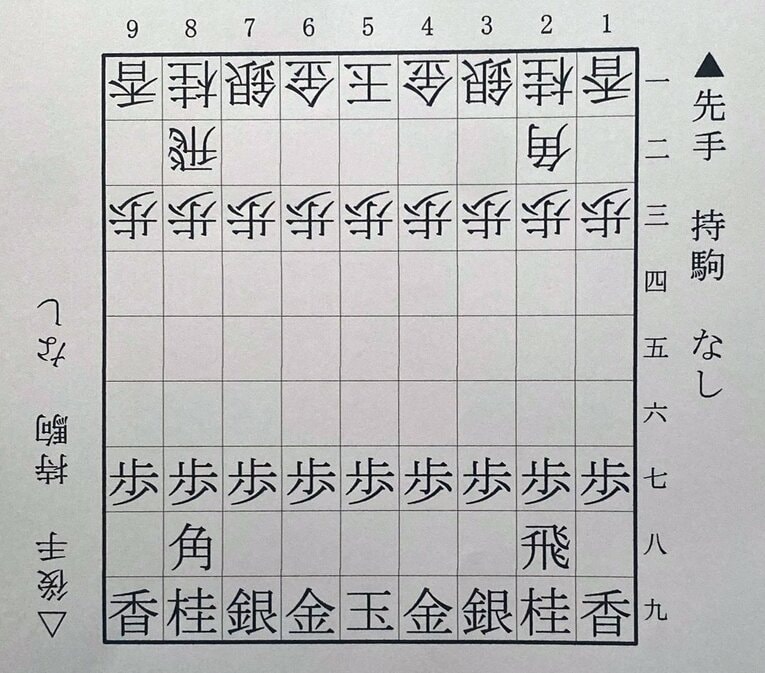 9 8 7 6 5 4 3 2 1
香 桂 銀 金 玉 金 銀 桂 香 一
飛 角 二
歩 歩 歩 歩 歩 歩 歩 歩 歩 三
四
五
六
歩 歩 歩 歩 歩 歩 歩 歩 歩 七
角 飛 八
香 桂 銀 金 玉 金 銀 桂 香 九
▲先手 持駒 なし
△後手 持駒 なし